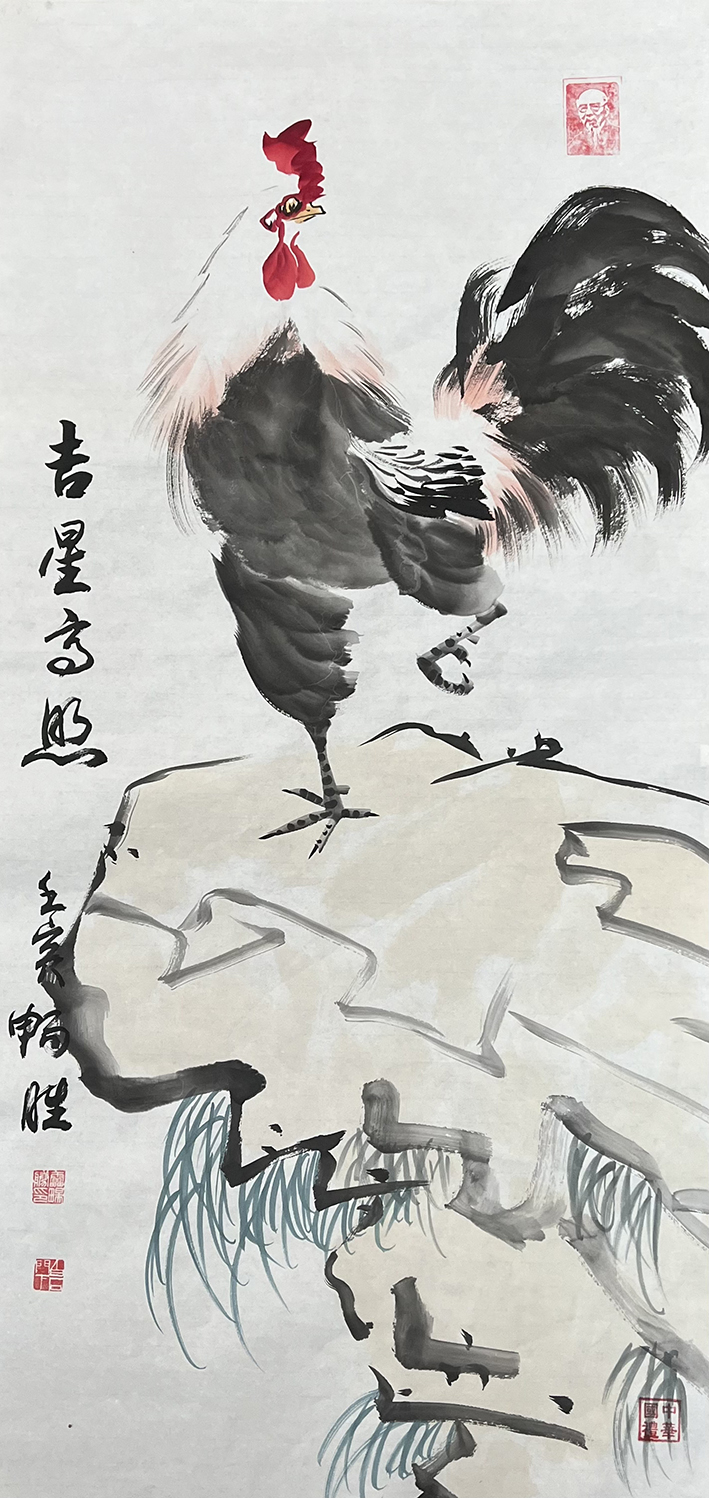 吉星高照
壬寅畅胜
中華國禮